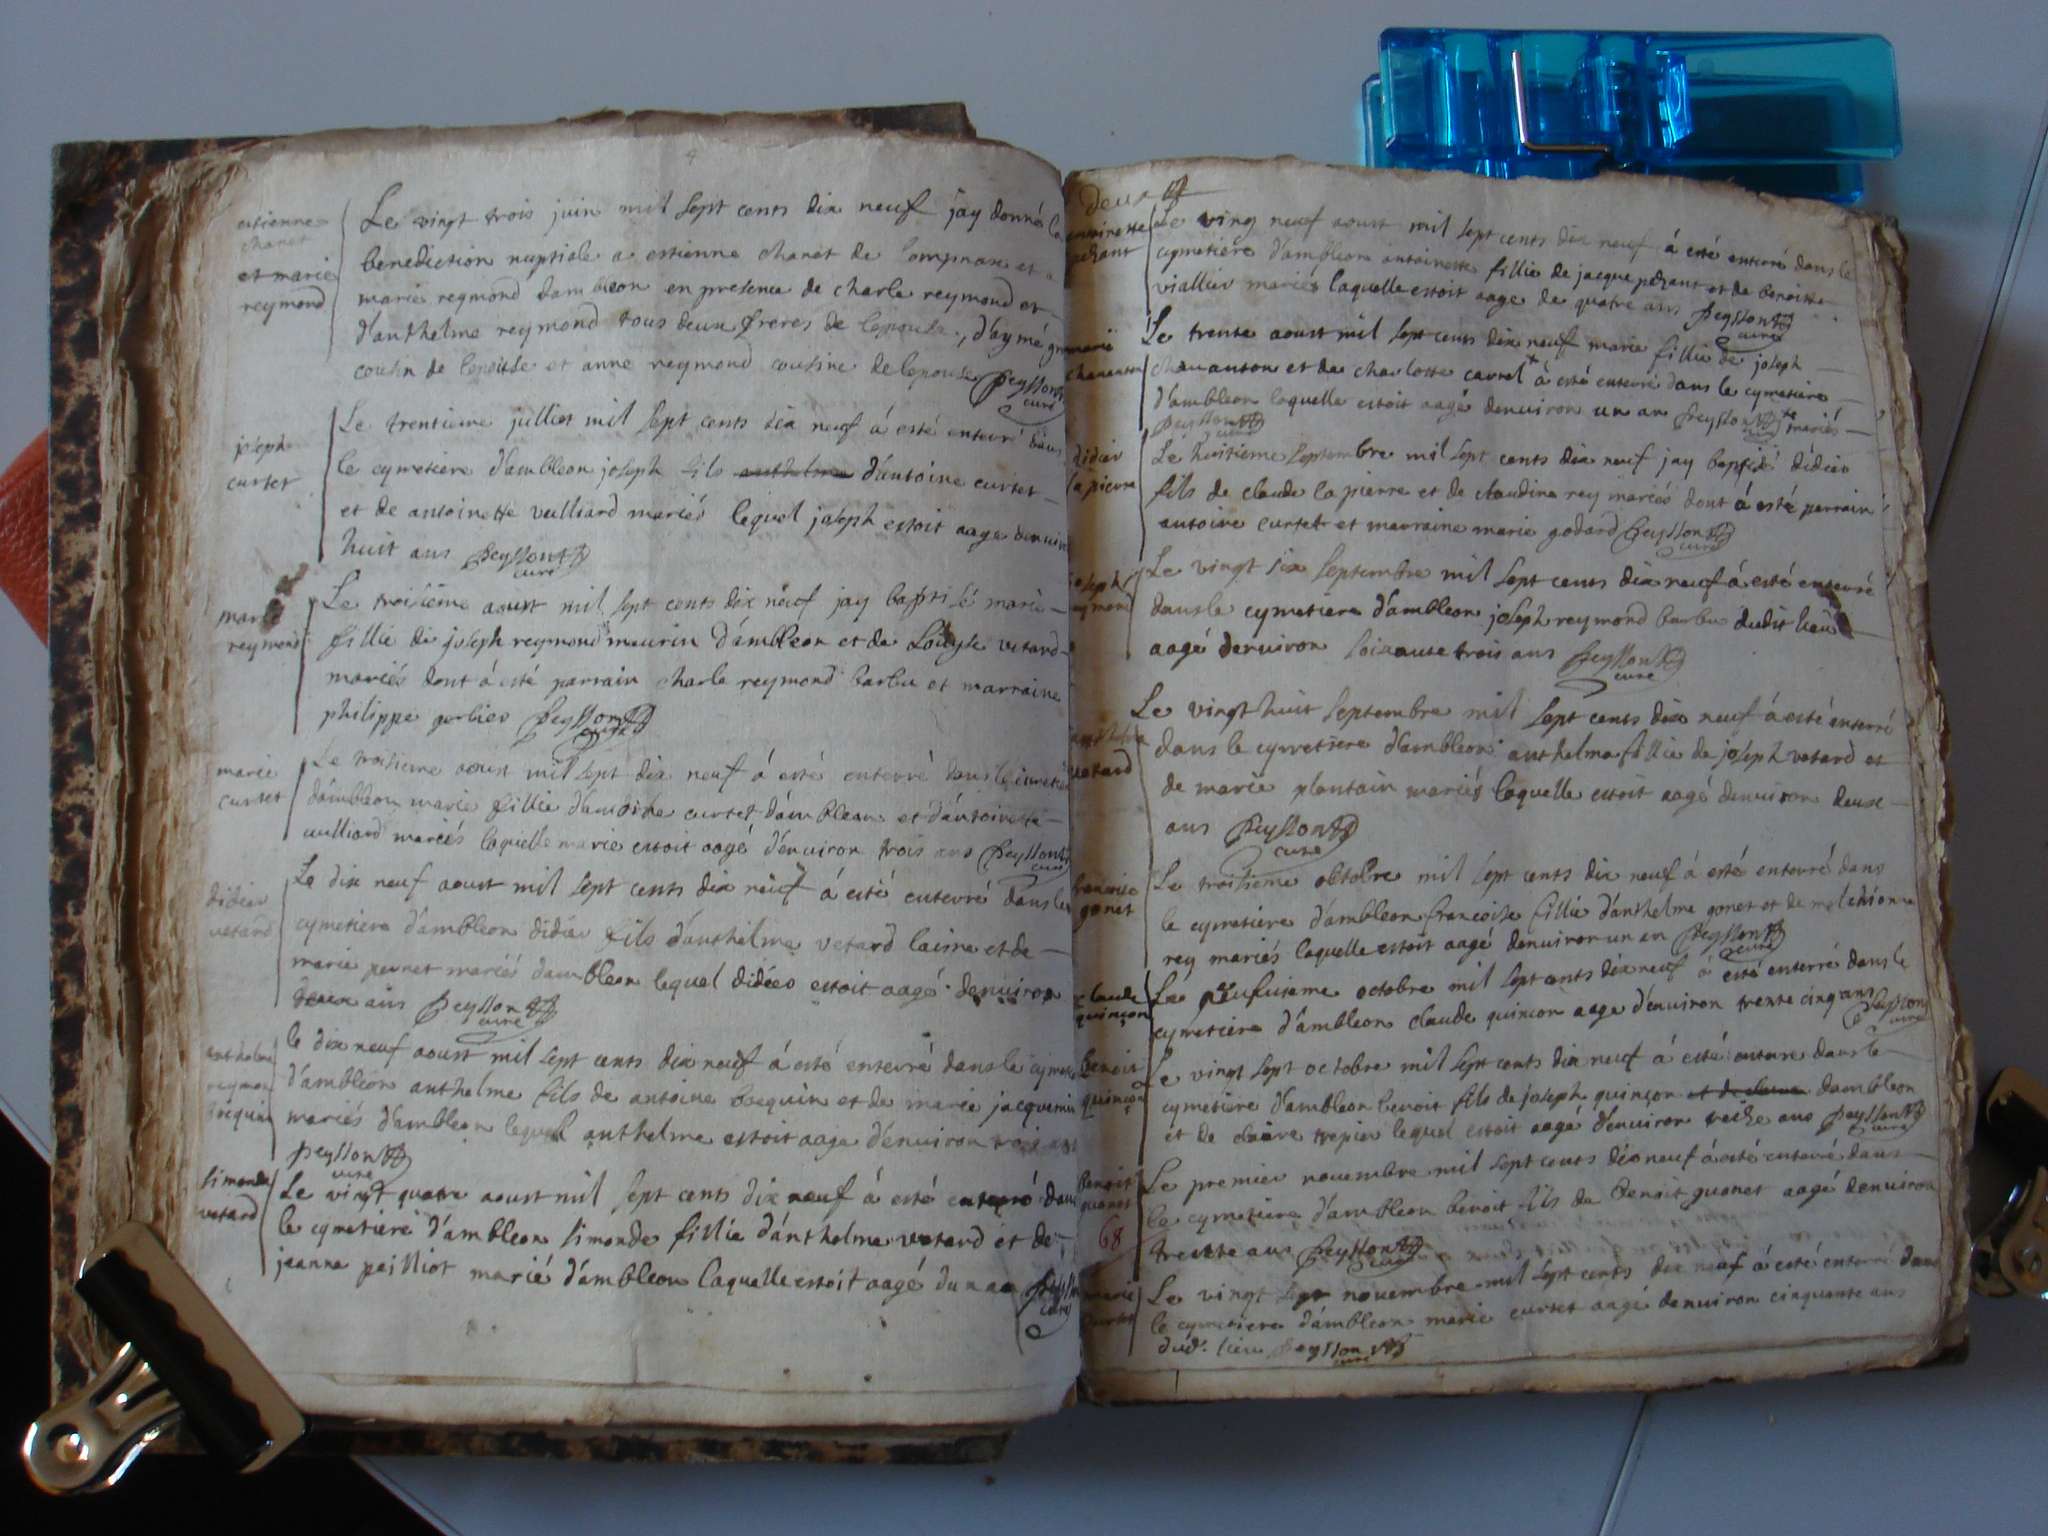 estienne
chanet
et marie
reymond
Le vingt trois juin mil sept cents dix neuf jay donné la
benediction nuptiale a estienne chanet de et a
marie reymond dambleon en presence de charle reymond et
d'anthelme reymond tous deux freres de lepouse, d'aymé
cousin de lepouse et anne reymond cousine de lepouse Peysson
curé
joseph
curtet
Le trentieme jullier mil sept cents dix neuf á esté enterré dans
le cymetiere d'ambleon joseph fils anthelme d'antoine curtet
et de antoinette vulliard mariés lequel joseph estoit aage denviron
huit ans Peysson
curé
marie
reymond
Le troisieme aoust mil sept cents dix neuf jay baptisé marie
fillie de joseph reymond maurin d'ambleon et de Louyse vetard
mariés dont á esté parrain charle reymond barbu et marraine
philippe gerbier Peysson
curé
marie
curtet
Le troisieme aoust mil sept dix neuf á esté enterré dans le cimetie
d'ambleon marie fillie d'antoine curtet d'ambleon et d'antoinette
vulliard mariés laquelle marie estoit aagé d'environ trois ans Peysson
curé
didier
vetard
Le dix neuf aoust mil sept cents dix neuf á esté enterré dans le
cymetiere d'ambleon didier fils d'anthelme vetard laisne et de
marie pernet mariés dambleon lequel didier estoit aagé denviron
deux ans Peysson
curé
anthelme
reymon
bocquin
le dix neuf aoust mil sept cents dix neuf á esté enterré dans le cymetie
d'ambleon anthelme fils de antoine bocquin et de marie jacquemin
mariés d'ambleon lequel anthelme estoit aage d'environ trois ans
Peysson
curé
simonde
vetard
Le vingt quatre aoust mil sept cents dix neuf á esté enterré dans
le cymetiere d'ambleon simonde fillie d'anthelme vetard et de
jeanne pailliot marié d'ambleon laquelle estoit aagé dun an Peysson
curé
deux
antoinette
pehant
Le ving neuf aoust mil sept cents dix neuf á esté enterré dans le
cymetiere d'ambleon antoinette fillie de jacque pehant et de benoitte
viallier mariés laquelle estoit aage de quatre ans Peysson
curé
marie
chavanton
Le trente aoust mil sept cents dix neuf marie fillie de joseph
chavanton et de charlotte cartel + á esté enterré dans le cymetiere
d'ambleon laquelle estoit aagé denviron un an Peysson + mariés
Peysson
curé
didier
lapierre
Le huitieme septembre mil sept cents dix neuf jay baptisé didier
fils de claude lapierre et de claudine rey mariés dont á esté parrain
antoine curtet et marraine marie godard Peysson
curé
joseph
reymond
Le vingt six septembre mil sept cents dix neuf á esté enterré
dans le cymetiere d'ambleon joseph reymond barbu dudit lieu
aagé denviron soixante trois ans Peysson
curé
anthelma
vetard
Le vingt huit septembre mil sept cents dix neuf á esté enterré
dans le cymetiere d'ambleon anthelma fillie de joseph vetard et
de marie plantain mariés laquelle estoit aagé denviron deux
ans Peysson
curé
francoise
gonet
Le troisieme obtobre mil sept cents dix neuf á esté enterré dans
le cymetiere d'ambleon francoise fillie d'anthelme gonet et de melchionne
rey mariés laquelle estoit aagé denviron un an Peysson
curé
claude
quinçon
Le octobre mil sept cents dix neuf á esté enterré dans le
cymetiere d'ambleon claude quincon aage d'environ trente cinq ans Peysson
curé
benoit
quinçon
Le vingt sept octobre mil sept cents dix neuf á esté enterré dans le
cymetiere d'ambleon benoit fils de joseph quinçon et de claire dambleon
et de claire trepier lequel estoit aagé d'environ treize ans Peysson
curé
benoit
guonet
68
Le premier novembre mil sept cents dix neuf á esté enterré dans
le cymetiere d'ambleon benoit fils de benoit guonet aagé denviron
treize ans Peysson
curé
marie
curtet
Le vingt sept novembre mil sept cents dix neuf á esté enterré dans
le cymetiere d'ambleon marie curtet aagé denviron cinquante ans
dud. lieu Peysson
curé